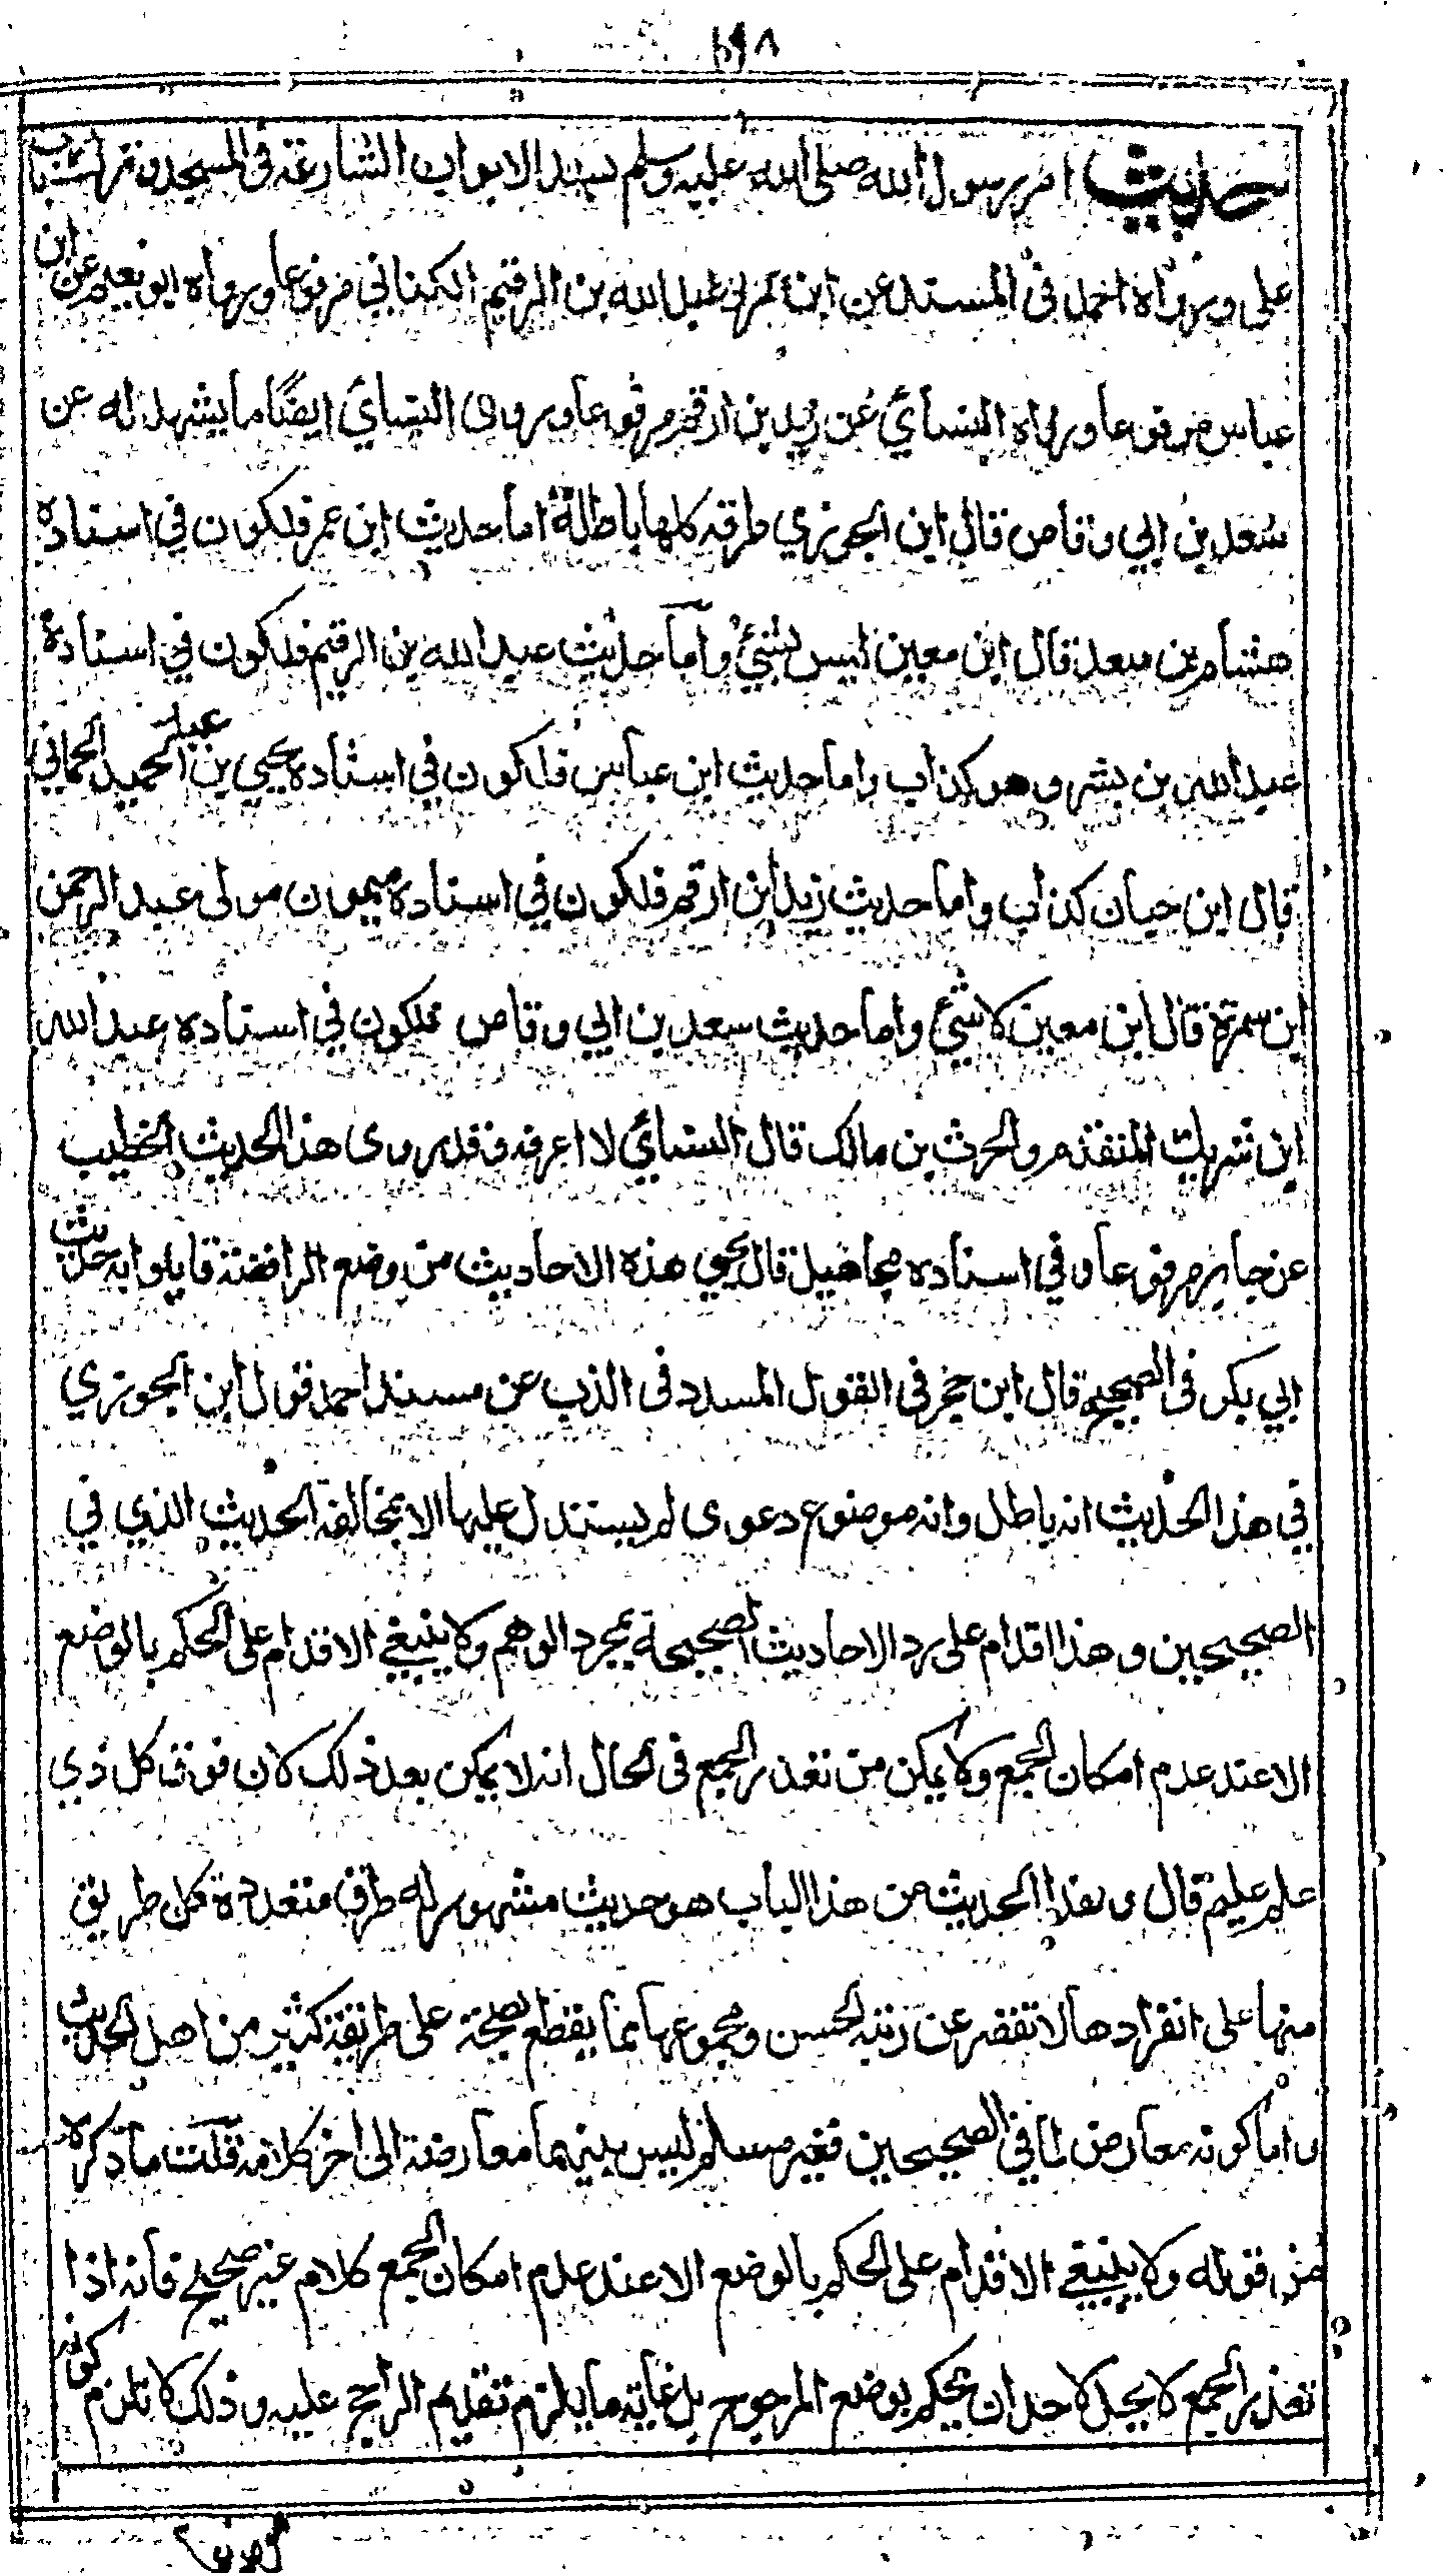 حديث امر رسول الله صلى الله عليه وسلم بسد الابواب الشارعة فى المسجد وترك باب
على ورواه احمد فى المسند عن ابن عمر وعن عبد الله بن الرقيم الكناني مرفوعا ورواه ابو نعيم عن ابن
عباس مرفوعا ورواه النسائي عن زيد بن ارقم مرفوعا وروى النسائي ايضًا ما يشهد له عن
سعد بن ابي وقاص قال ابن الجوزي طرقه كلها باطلة اما حديث ابن عمر فلكون في اسناده
هشام بن سعد قال ابن معين ليس بشيء وأما حديث عبد الله بن الرقيم فلكون في اسناده
عبد الله بن بشر وهو كذاب واما حديث ابن عباس فلكون في اسناده يحيى بن عبد الحميد الحماني
قال ابن حبان كذاب واما حديث زيد ابن ارقم فلكون في اسناده ميمون مولى عبد الرحمن
ابن سمرة قال ابن معين لا شيء واما حديث سعد بن ابي وقاص فلكون في اسناده عبد الله
ابن شريك المتقدم والحرث بن مالك قال النسائي لا اعرفه وقد روى هذا الحديث الخطيب
عن جابر مرفوعا وفي اسناده مجاهيل قال يحيى هذه الاحاديث من وضع الرافضة قابلوا به حديث
ابي بكر فى الصحيح قال ابن حجر فى القول المسدد فى الذب عن مسند احمد قول ابن الجوزي
في هذا الحديث انه باطل وانه موضوع دعوى لم يستدل عليها الا بمخالفة الحديث الذي في
الصحيحين وهذا اقدام على رد الاحاديث الصحيحة بمجرد الوهم ولا ينبغي الاقدام على الحكم بالوضع
الا عند عدم امكان الجمع ولا يمكن من تعذر الجمع فى الحال انه لا يمكن بعد ذلك لان فوق كل ذي
علم عليم قال وهذا الحديث من هذا الباب هو حديث مشهور له طرق متعددة كل طريق
منها على انفرادها لا تقصر عن رتبة الحسن ومجموعها مما يقطع بصحته على طريقة كثير من اهل الحديث
واما كونه معارض لما في الصحيحين فغير مسلم ليس بينهما معارضة الى اخر كلامه قلت ما ذكره
من قوله ولا ينبغي الاقدام على الحكم بالوضع الا عند عدم امكان الجمع كلام غير صحيح فانه اذا
تعذر الجمع لا يحل لاحد ان يحكم بوضع المرجوح بل غاية ما يلزم تقديم الراجح عليه وذلك لا يلزم كونه